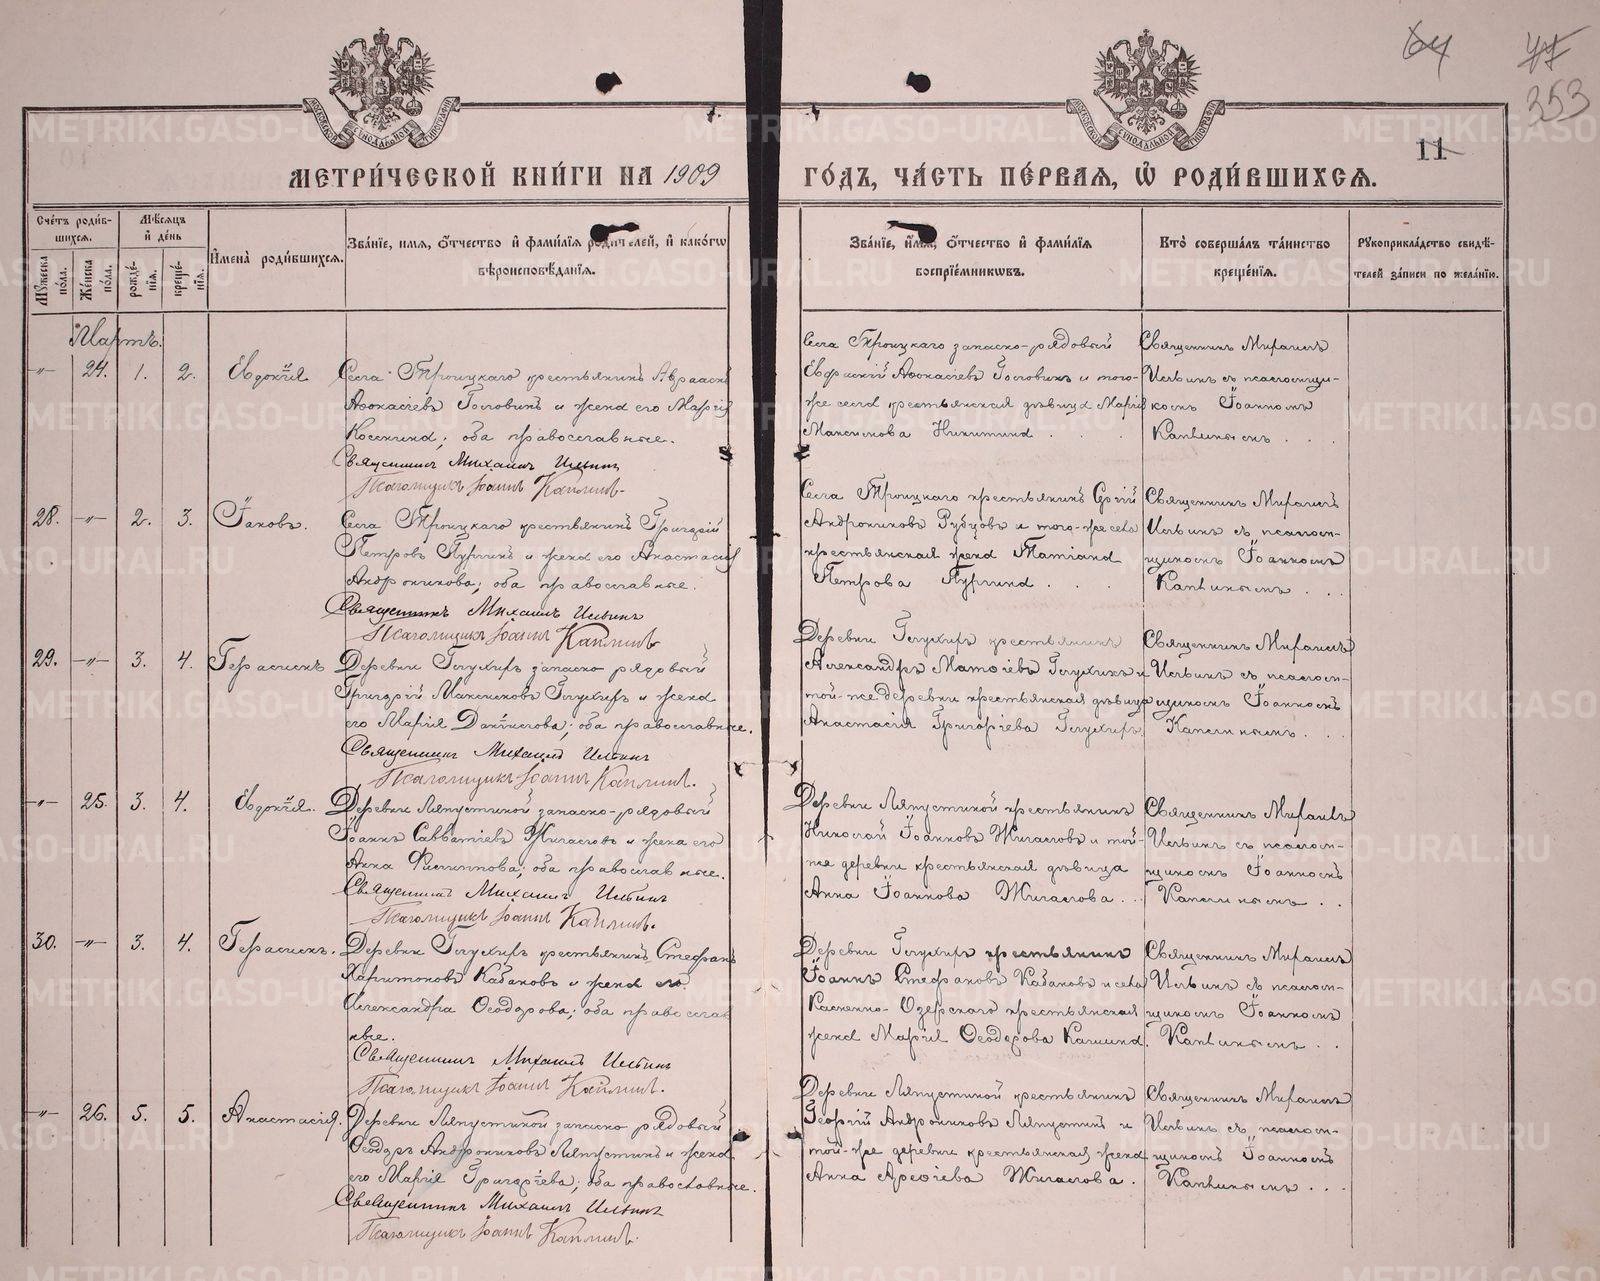 64 47
353
11
МЕТРИ́ЧЕСКОЙ КНИ́ГИ НА 1909 ГО́ДЪ, ЧА́СТЬ ПЕ́РВАЯ, Ѡ РОДИ́ВШИХСЯ.
Сче́тъ роди́вшихся.
Му́жеска по́ла.
Же́нска по́ла.
Мѣ́сяцъ и де́нь
рожде́нія.
креще́нія.
И҆мена̀ роди́вшихся.
Зва́нїе, имя, ѻ҆́тчество и҆ фами́лїя роди́телей, и҆ како́гѡ вѣроисповѣ́данїя.
Зва́нїе, и҆́мя, ѻ҆́тчество и҆ фами́лїя воспрїе́мникѡвъ.
Кто̀ соверша́лъ та́инство креще́нїя.
Рꙋкоприкла́дство свидѣ́телей за́писи по жела́нїю.
Мартъ.
-"- 24. 1. 2. Евдокія
Села Троицкаго крестьянинъ Авраамъ
Аѳонасіевъ Головинъ и жена его Марія
Косенкина; оба православные.
Священникъ Михаилъ Ильинъ
Псаломщикъ Іоаннъ Каплинъ.
Села Троицкаго запасно-рядовый
Евфрасій Аѳонасіевъ Головинъ и того-
же села крестьянская дѣвица Марія
Максимова Никитина . . .
Священникъ Михаилъ
Ильинъ съ псаломщи-
комъ Іоанномъ
Каплинымъ . . .
28. -"- 2. 3. Іаковъ.
Села Троицкаго крестьянинъ Григорій
Петровъ Пургинъ и жена его Анастасія
Андроникова; оба православные.
Священникъ Михаилъ Ильинъ
Псаломщикъ Іоаннъ Каплинъ
Села Троицкаго крестьянинъ Сергій
Андрониковъ Рубцовъ и того-же села
крестьянская жена Татіана
Петрова Пургина . . .
Священникъ Михаилъ
Ильинъ съ псалом-
щикомъ Іоанномъ
Каплинымъ . . .
29. -"- 3. 4. Герасимъ
Деревни Глухихъ запасно рядовый
Григорій Максимовъ Глухихъ и жена
его Марія Даніилова; оба православные.
Священникъ Михаилъ Ильинъ
Псаломщикъ Іоаннъ Каплинъ.
Деревни Глухихъ крестьянинъ
Александръ Матѳіевъ Глухихъ и
той-же деревни крестьянская дѣвица
Анастасія Григоріева Глухихъ.
Священникъ Михаилъ
Ильинъ съ псалом-
щикомъ Іоанномъ
Каплинымъ. . .
-"- 25. 3. 4. Евдокія.
Деревни Ляпустиной запасно-рядовый
Іоаннъ Савватіевъ Жигаловъ и жена его
Анна Филиппова; оба православные.
Священникъ Михаилъ Ильинъ
Псаломщикъ Іоаннъ Каплинъ.
Деревни Ляпустиной крестьянинъ
Николай Іоанновъ Жигаловъ и той-
же деревни крестьянская дѣвица
Анна Іоаннова Жигалова . . .
Священникъ Михаилъ
Ильинъ съ псалом-
щикомъ Іоанномъ
Каплинымъ . .
30. -"- 3. 4. Герасимъ.
Деревни Глухихъ крестьянинъ Стефанъ
Харитоновъ Кабаковъ и жена его
Александра Ѳеодорова; оба православ
ные.
Священникъ Михаилъ Ильинъ
Псаломщикъ Іоаннъ Каплинъ.
Деревни Глухихъ крестьянинъ
Іоаннъ Стефановъ Кабаковъ и села
Каменно-Озерскаго крестьянская
жена Марія Ѳеодорова Кашина.
Священникъ Михаилъ
Ильинъ съ псалом-
щикомъ Іоанномъ
Каплинымъ . .
-"- 26. 5. 5. Анастасія.
Деревни Ляпустиной запасно рядовый
Ѳеодоръ Андрониковъ Ляпустинъ и жена
его Марія Григоріева; оба православные.
Священникъ Михаилъ Ильинъ
Псаломщикъ Іоаннъ Каплинъ.
Деревни Ляпустиной крестьянинъ
Георгій Андрониковъ Ляпустинъ и
той-же деревни крестьянская жена
Анна Ареѳіева Жигалова .
Священникъ Михаилъ
Ильинъ съ псалом-
щикомъ Іоанномъ
Каплинымъ . . .
METRIKI.GASO-URAL.RU